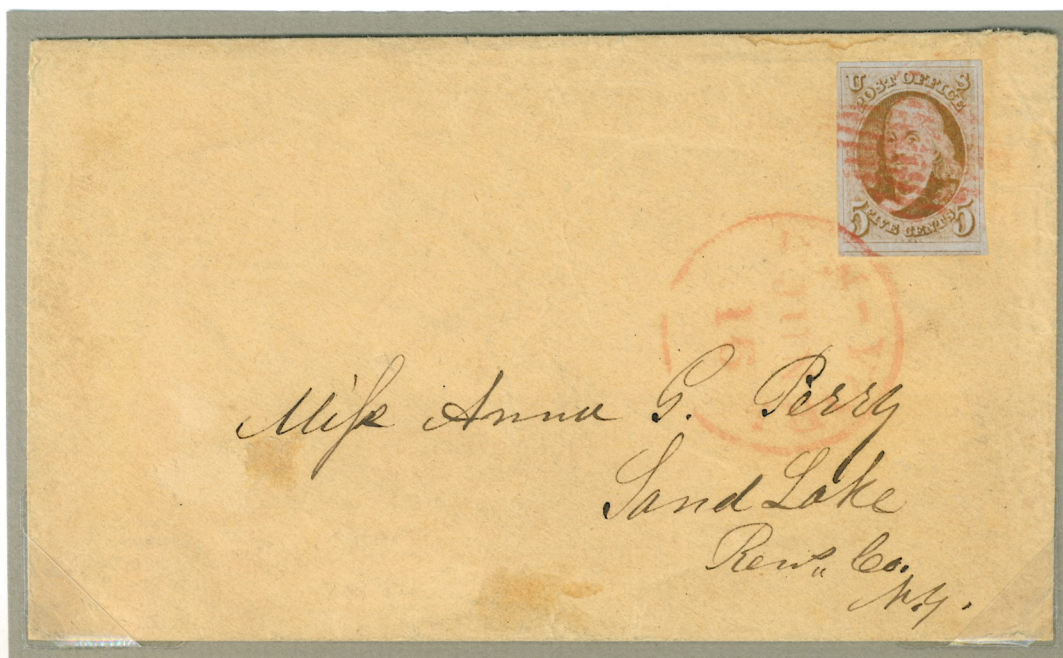 U S
POST OFFICE
5 FIVE CENTS 5
15
Miſs Anna G. Perry
Sand Lake
Renſs Co.
N.Y.